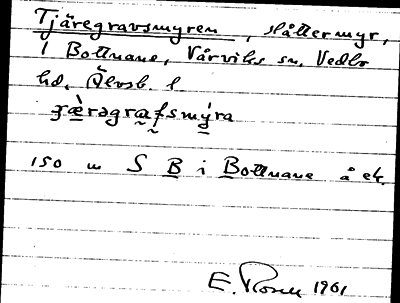 Tjäregravsmyren, slåttermyr,
i Bottnane, Vårviks sn, Vedbo
hd, Älvsb. l.
150 m S B i Bottnane å ek.
E. Rosell 1961